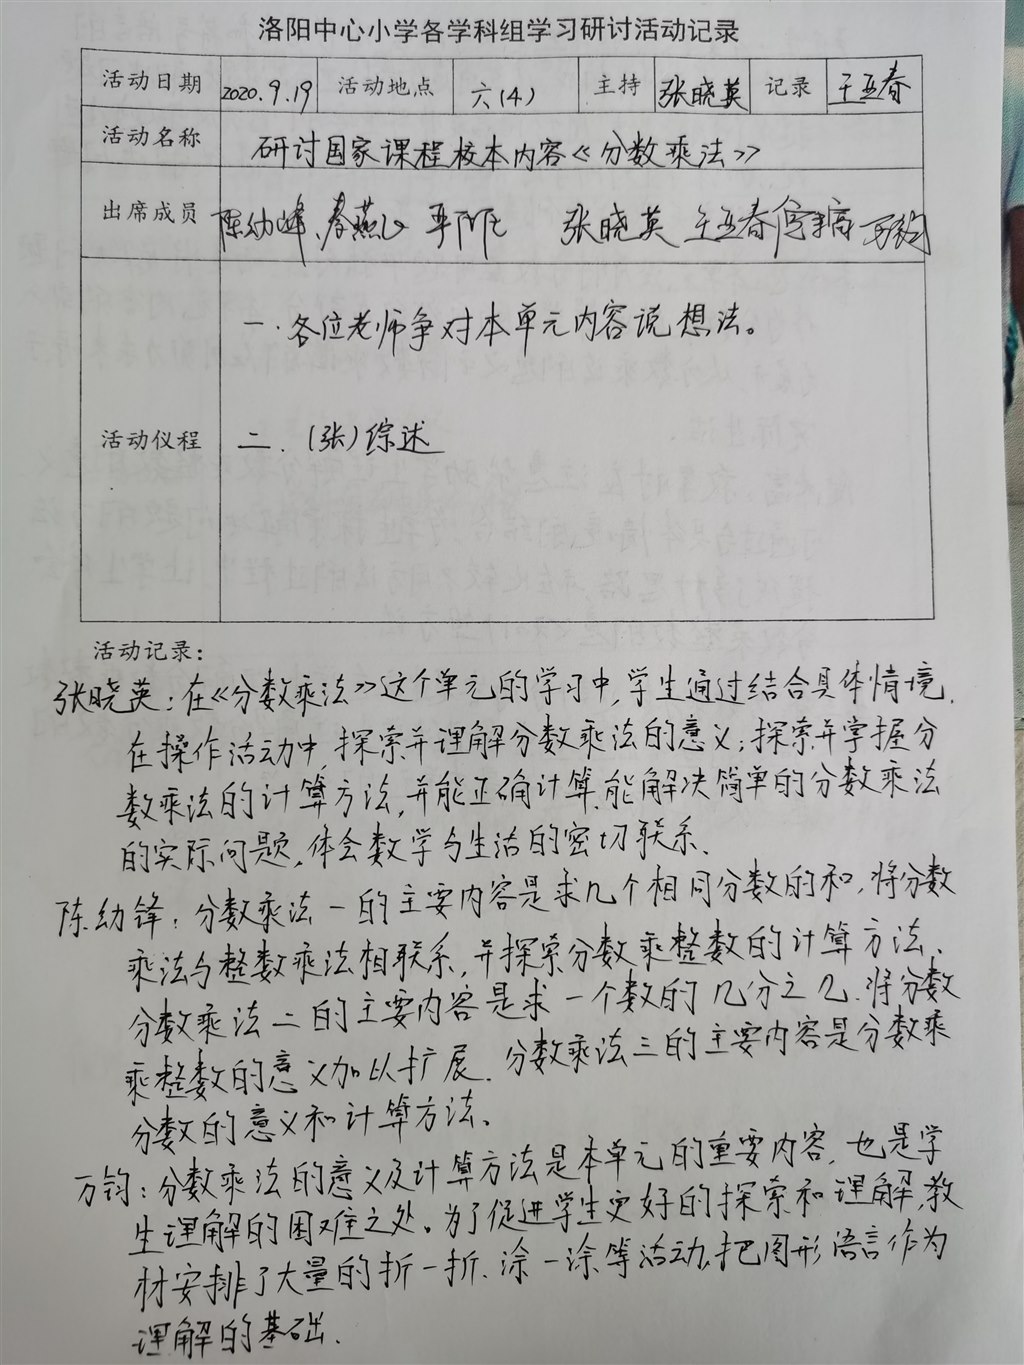 洛阳中心小学各学科组学习研讨活动记录
活动日期 2020.9.19 活动地点 六(4) 主持 张晓英 记录 王五春
活动名称 研讨国家课程校本内容《分数乘法》
出席成员 陈幼峰、 张晓英 王五春 万钧
一.各位老师争对本单元内容说想法。
活动仪程 二.(张)综述
活动记录:
张晓英:在《分数乘法》这个单元的学习中,学生通过结合具体情境.
在操作活动中,探索并理解分数乘法的意义;探索并掌握分
数乘法的计算方法,并能正确计算.能解决简单的分数乘法
的实际问题,体会数学与生活的密切联系.
陈幼锋:分数乘法一的主要内容是求几个相同分数的和,将分数
乘法与整数乘法相联系,并探索分数乘整数的计算方法.
分数乘法二的主要内容是求一个数的几分之几.将分数
乘整数的意义加以扩展.分数乘法三的主要内容是分数乘
分数的意义和计算方法。
万钧:分数乘法的意义及计算方法是本单元的重要内容,也是学
生理解的困难之处。为了促进学生更好的探索和理解,教
材安排了大量的折一折.涂一涂等活动,把图形语言作为
理解的基础.